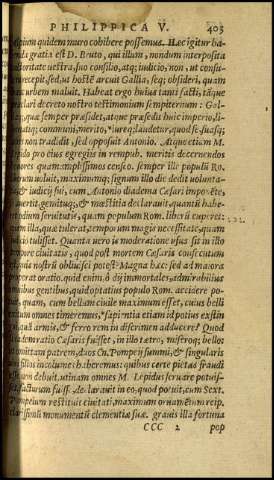 PHILIPPICA V. 403
quidem muro cohibere possemus. Hæc igitur ha-
gratia est D. Bruto, qui illum, nondum interposita
uestra, suo consilio, atq; iudicio, non, ut consu-
recepit, sed, ut hostẽ arcuit Gallia, seq; obsideri, quam
urbem maluit. Habeat ergo huius tanti facti, tãque
præclari decreto nostro testimonium sempiternum: Gal-
quæ semper præsidet, atque præsedit huic imperio, li-
communi, merito, uereq; laudetur, quod se, suasq;
non tradidit, sed opposuit Antonio. Atque etiam M.
pro eius egregiis in rempub. meritis decernendos
honores quam amplissimos censeo. semper ille populũ Ro.
liberum uoluit, maximumq; signum illo die dedit uolunta-
& iudicij sui, cum Antonio diadema Cæsari imponẽte,
auertit, gemituq;, & mœstitia declarauit, quantũ habe-
odium seruitutis, quam populum Rom. liberũ cuperet:
illa, quæ tulerat, temporum magis necessitate, quam
iudicio tulisset. Quanta uero is moderatione usus sit in illo
ciuitatis, quod post mortem Cæsaris consecutum
nostrũ obliuisci potest? Magna hæc: sed ad maiora
properat oratio. quid enim, ô dij immortales, admirabilius
gentibus, quid optatius populo Rom. accidere po-
quam, cum bellum ciuile maximum esset, cuius belli
omnes timeremus, sapientia etiam id potius extin-
quã armis, & ferro rem in discrimen adducere? Quod
eadem ratio Cæsaris fuisset, in illo tetro, miseroq; bello:
omittam patrem, duos Cn. Pompeij summi, & singularis
filios incolumes haberemus: quibus certe pietas fraudi
debuit. utinam omnes M. Lepidus seruare potuis-
facturum fuisse declarauit in eo, quod potuit, cum Sext.
Pompeium restituit ciuitati, maximum ornamentum reip.
clarissimũ monumentũ clementiæ suæ. grauis illa fortuna
CCC 2 pop